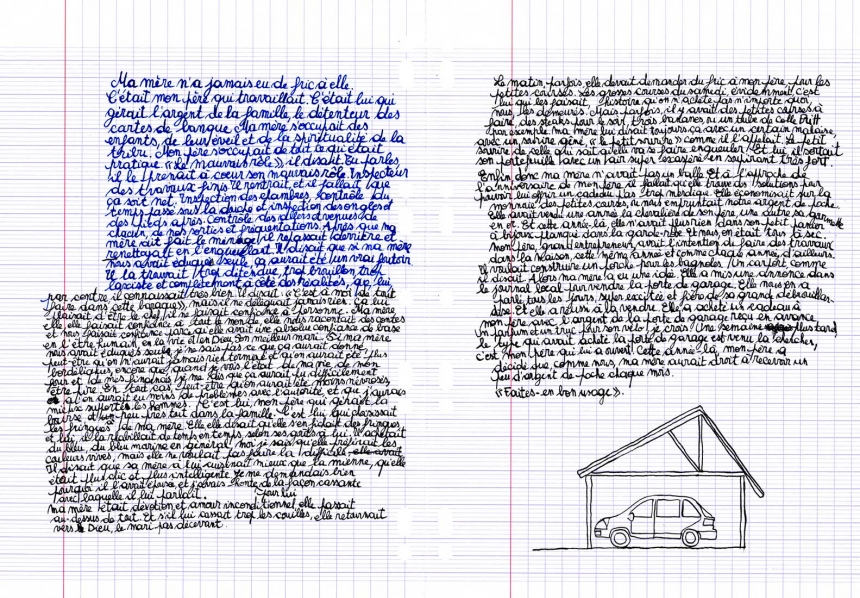 Ma mère n'a jamais eu de fric à elle.
C'était mon père qui travaillait. C'était lui qui
gérait l'argent de la famille, le détenteur des
cartes de banque. Ma mère s'occupait des
enfants, de leur éveil et de la spiritualité de la
tribu. Mon père s'occupait de tout ce qui était
pratique. « Le mauvais rôle » il disait. Tu parles,
il le prenait à cœur son mauvais rôle. Inspecteur
des travaux finis il rentrait, et il fallait que
ça soit net. Inspection des chambres. Contrôle du
temps passé sous la douche et inspection des ongles
des pieds après. Contrôle des allers et venues de
chacun, de nos sorties et fréquentations. Après que ma
mère ait fait le ménage il repassait derrière et
nettoyait en l'engueulant. Il disait que si ma mère
nous avait éduqués seule, ça aurait été un vrai foutoir
il la trouvait trop distendue, trop brouillon trop
laxiste et complètement à côté des réalités, que lui,
par contre il connaissait très bien. Il disait : « C'est à moi de tout
faire dans cette baraque », mais il ne déléguait jamais rien. Ça lui
plaisait d'être le chef, il ne faisait confiance à personne. Ma mère
elle, elle faisait confiance à tout le monde, elle nous racontait des contes
et nous faisait confiance parce qu'elle avait une absolue confiance de base
en l'être humain, en la vie et en Dieu, son meilleur mari. Si ma mère
nous avait éduqués seule, je ne sais pas ce que ça aurait donné
peut-être qu'on n'aurait jamais rien terminé et qu'on aurait été plus
bordéliques, encore que, quand je vois l'état de ma vie, de mon
four et de mes finances, je me dis que ça aurait pu difficilement
être pire. En tout cas, peut-être qu'on aurait été moins névrosés,
qu'on aurait eu moins de problèmes avec l'autorité, et que j'aurais
mieux supporté les hommes. C'est lui, mon père qui gérait la
bourse d'un peu près tout dans la famille. C'est lui qui choisissait
les fringues de ma mère. Elle elle disait qu'elle s'en fichait des fringues
et lui, il la rhabillait de temps en temps, selon ses goûts à lui. Il achetait
du bleu, du bleu marine en général, moi je sais qu'elle préférait les
couleurs vives, mais elle ne voulait pas faire la difficile,
il disait que sa mère à lui cuisinait mieux que la mienne, qu'elle
était plus chic et plus intelligente. Je me demandais bien
pourquoi il l'avait épousée, et j'avais honte de la façon cassante
avec laquelle il lui parlait. pour lui
Ma mère c'était dévotion et amour inconditionnel, elle passait
au-dessus de tout. Et s'il lui cassait trop les couilles, elle retournait
vers Dieu, le mari pas décevant.
Le matin, parfois, elle devait demander du fric à mon père, pour les
petites courses. Les grosses courses du samedi, évidemment c'est
lui qui les faisait. Histoire qu'on n'achète pas n'importe quoi,
nous les demeurés. Mais parfois, il y avait des petites courses à
faire, des steaks pour le soir, trois bananes ou un tube de colle Pritt
par exemple. Ma mère lui disait toujours ça avec un certain malaise,
avec un sourire gêné, « le petit sourire » comme il l'appelait. Le petit
sourire de celle qui sait qu'elle va se faire engueuler. Et lui il sortait
son portefeuille avec un air super exaspéré en soupirant très fort.
Enfin donc ma mère n'avait pas un balle. Et à l'approche de
l'anniversaire de mon père, il fallait qu'elle trouve des solutions pour
pouvoir lui offrir un cadeau pas trop merdique. Elle économisait sur la
monnaie des petites courses, ou nous empruntait notre argent de poche.
Elle avait vendu une année la chevalière de son père, une autre sa gourmette
en or. Et cette année là, elle n'avait plus rien dans son petit panier
à bijoux planqué dans la garde-robe. Et nous on était très à sec.
Mon père, grand entrepreneur, avait l'intention de faire des travaux
dans la maison, cette même année et comme chaque année d'ailleurs.
Il voulait construire un porche pour les bagnoles. Un carport comme
il disait. Alors ma mère a eu une idée. Elle a mis une annonce dans
le journal local pour vendre la porte de garage. Elle nous en a
parlé tous les jours, super excitée et fière de sa grande débrouillar-
dise. Et elle a réussi à la vendre. Elle a acheté un cadeau à
mon père avec l'argent de la porte de garage reçu en avance.
Un parfum et un truc pour son vélo je crois. Une semaine plus tard
le type qui avait acheté la porte de garage est venu la chercher,
c'est mon père qui lui a ouvert. Cette année là, mon père a
décidé que, comme nous, ma mère aurait droit à recevoir un
peu d'argent de poche chaque mois.
« Faites-en bon usage ».